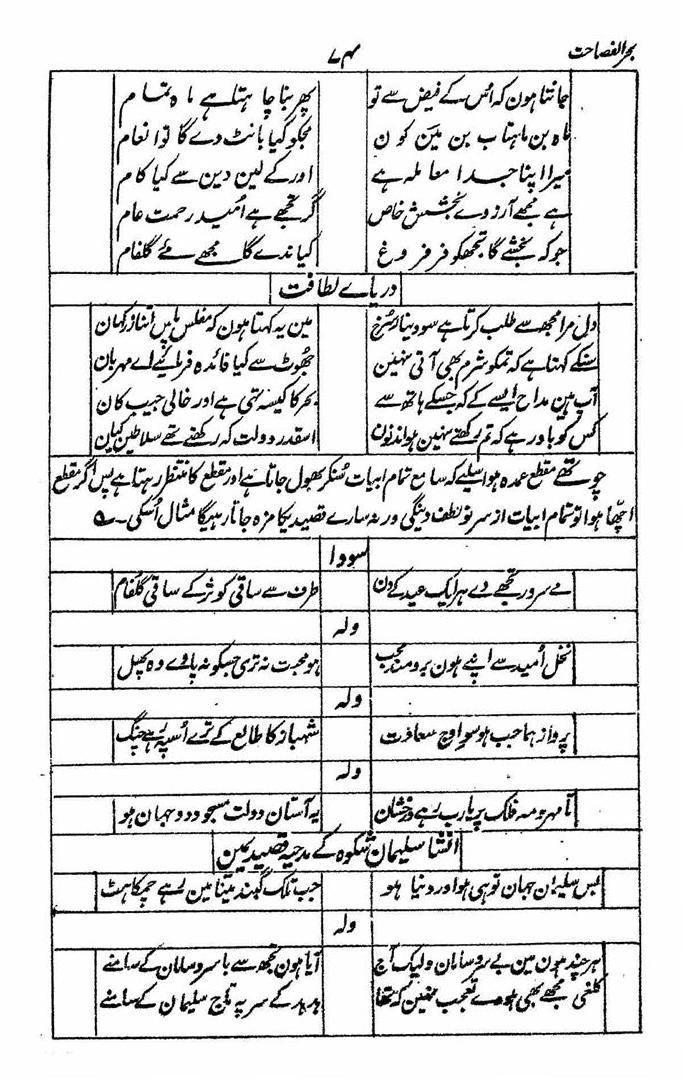 بحر الفصاحت
۷۴
جانتا ہون کہ اُس کے فیض سے تو پھر بنا چاہتا ہے ماہ تمام
ماہ بن ماہتاب بن مین کون مجکو کیا بانٹ دے گا تو انعام
میرا اپنا جدا معاملہ ہے اور کے لین دین سے کیا کام
ہے مجھے آرزوے بخشش خاص گر تجھے ہے اُمید رحمت عام
جو کہ بخشے گا تجھکو فر فروغ کیا ندے گا مجھے مئے گلفام
دریاے لطافت
دل مرا مجھسے طلب کرتا ہے سو دینار سُرخ مین یہ کہتا ہون کہ مفلس پاس اتنا زر کہان
سنکے کہتا ہے کہ تمکو شرم بھی آتی نہین جھوٹ سے کیا فائدہ فرمائیے اے مہربان
آپ ہین مداح ایسے کے کہ جسکے ہاتھ سے بحر کا کیسہ تہی ہے اور خالی جیب کان
کس کو باور ہے کہ تم رکھتے نہین ہو اندنون اسقدر دولت کہ رکھتے تھے سلاطین کیان
چوتھے مقطع عمدہ ہو اسلیے کہ سامع تمام ابیات سُنکر بھول جاتا ہے اور مقطع کا منتظر رہتا ہے پس اگر مقطع
اچھا ہوا تو تمام ابیات از سر نو لطف دینگی ورنہ سارے قصیدیکا مزہ جاتا رہیگا مثال اُسکی۔
سودا
مے سرور تجھے دے ہر ایک عید کے دن طرف سے ساقی کوثر کے ساقی گلفام
ولہ
نخل اُمید سے اپنے ہون برومند محب ہو محبت نہ تری جسکو نہ پاوے وہ پھل
ولہ
پرواز ہما جب ہو سوے اوج سعادت شہباز کا طالع کے ترے اُسپہ رہے چنگ
ولہ
تا مہر و مہ فلک پر یارب رہے درخشان یہ آستان دولت مسجود دو جہان ہو
انشا سلیمان شکوہ کے مدحیہ قصیدیمین
بس سلیمان جہان تو ہی ہو اور دنیا ہو جب تلک گنبد مینا مین رہے چمکاہٹ
ولہ
ہر چند ہون مین بے سر و سامان ولیک آج آیا ہون تجھ سے با سر و سامان کے سامنے
کلغی مجھے بھی ہووے تعجب نہین کہ تھا ہدہد کے سر پہ تاج سلیمان کے سامنے